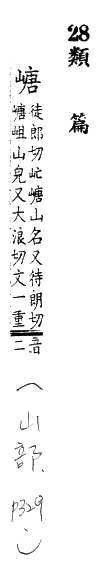 28類篇
嵣
徒郎切𡵆嵣山名又待朗切
嵣㟐山皃又大浪切文一重音二
(山部, p329)